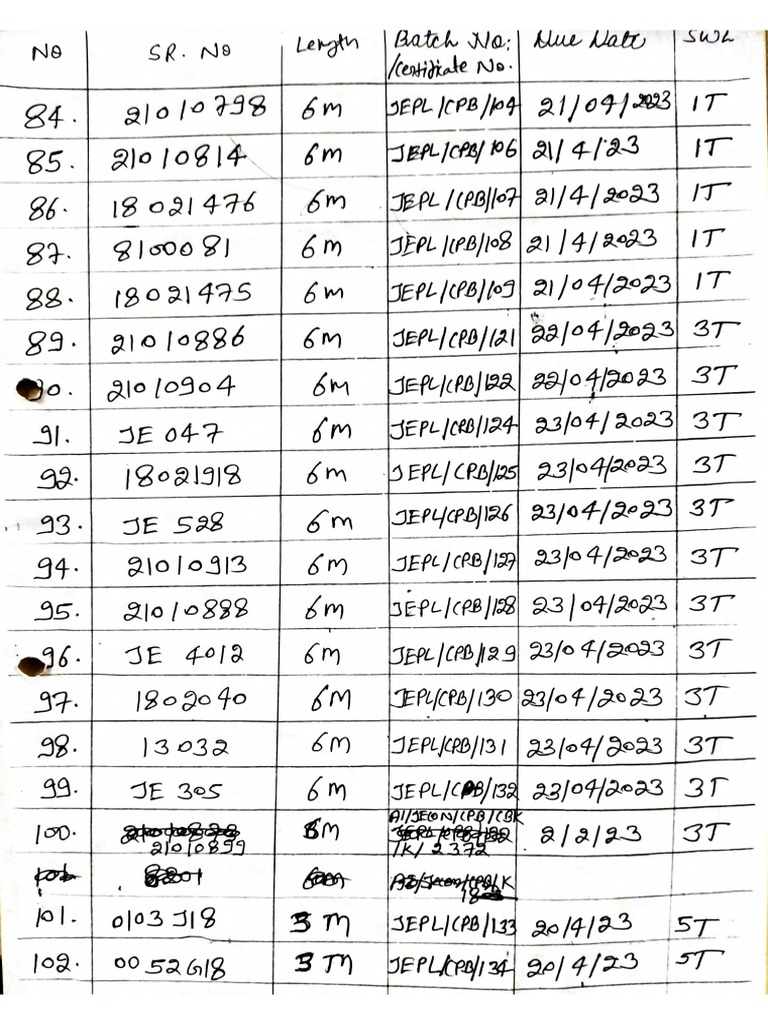 No SR. No Length Batch No: /Certificate No. Due Date SWL
84. 21010798 6m JEPL/CPB/104 21/04/2023 1T
85. 21010814 6m JEPL/CPB/106 21/4/23 1T
86. 18021476 6m JEPL/CPB/107 21/4/2023 1T
87. 8100081 6m JEPL/CPB/108 21/4/2023 1T
88. 18021475 6m JEPL/CPB/109 21/04/2023 1T
89. 21010886 6m JEPL/CPB/121 22/04/2023 3T
90. 21010904 6m JEPL/CPB/122 22/04/2023 3T
91. JE 047 6M JEPL/CPB/124 23/04/2023 3T
92. 18021918 6m JEPL/CPB/125 23/04/2023 3T
93. JE 528 6m JEPL/CPB/126 23/04/2023 3T
94. 21010913 6m JEPL/CPB/127 23/04/2023 3T
95. 21010888 6m JEPL/CPB/128 23/04/2023 3T
96. JE 4012 6m JEPL/CPB/129 23/04/2023 3T
97. 1802040 6M JEPL/CPB/130 23/04/2023 3T
98. 13032 6M JEPL/CPB/131 23/04/2023 3T
99. JE 305 6m JEPL/CPB/132 23/04/2023 3T
100. 21010899 6m AI/JEON/CPB/CBK /K/2372 2/2/23 3T
101. 0103 J18 3 M JEPL/CPB/133 20/4/23 5T
102. 0052G18 3 M JEPL/CPB/134 20/4/23 5T